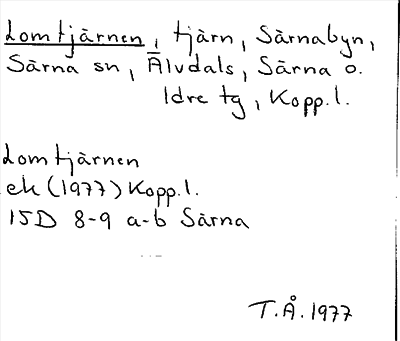 Lomtjärnen, tjärn, Särnabyn,
Särna sn, Älvdals, Särna o.
Idre tg, Kopp.l.
Lomtjärnen
ek (1977) Kopp.l.
15D 8-9 a-b Särna
T.Å. 1977